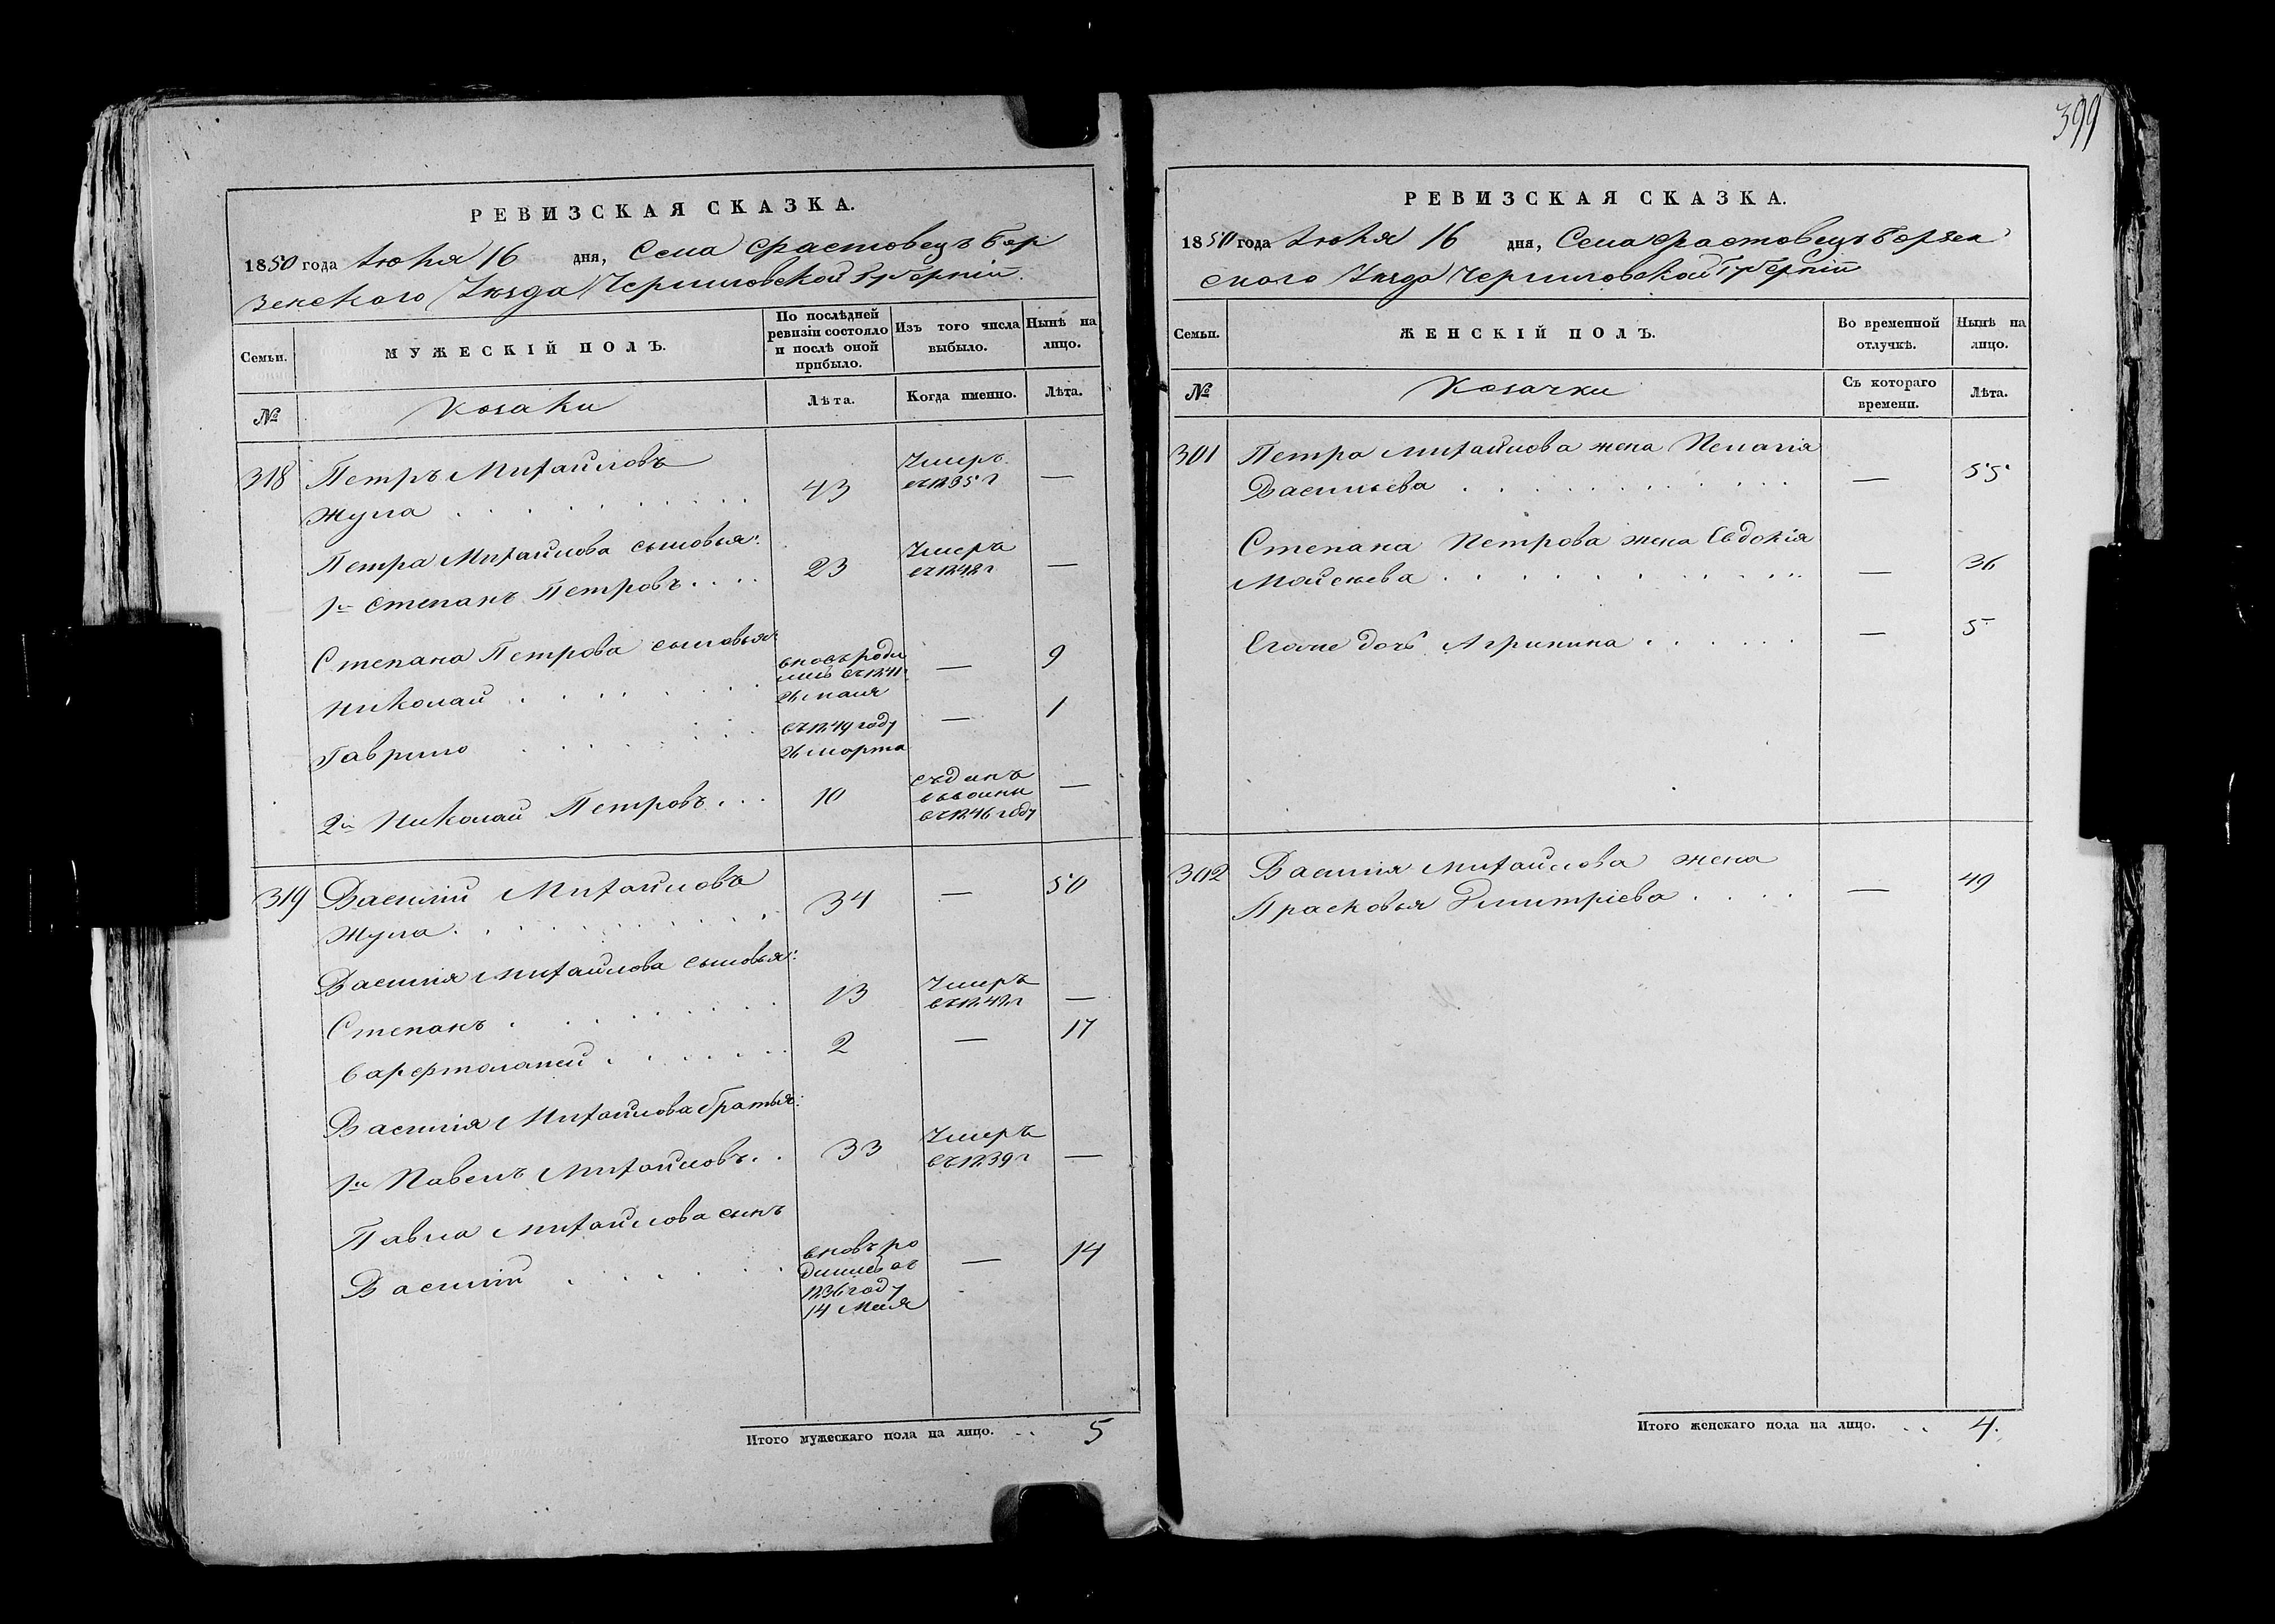 399
РЕВИЗСКАЯ СКАЗКА.
1850 года Іюня 16 дня, Села Фастовецъ Бор
зенскаго Уѣзда Черниговской Губерніи.
Семьи.
МУЖЕСКІЙ ПОЛЪ.
По послѣдней
ревизіи состояло
и послѣ оной
прибыло.
Изъ того числа
выбыло.
Нынѣ на
лицо.
№
Козаки
Лѣта.
Когда именно.
Лѣта.
318 Петръ Михайловъ
Жула . . . 43 Умеръ въ 1835 г —
Петра Михайлова сыновья:
1й Степанъ Петровъ . . . 23 Умеръ въ 1848 г —
Степана Петрова сыновья:
Николай . . . вновь роди
лись въ 1841
26 маія — 9
Гаврило . . . въ 1849 году
26 марта — 1
2й Николай Петровъ . . . 10
въ 1846 году —
319 Василій Михайловъ
Жула . . . 34 — 50
Василія Михайлова сыновья:
Степанъ . . . 13 Умеръ
въ 1848 г —
Варфтоломей . . . 2 — 17
Василія Михайлова братья:
1й Павелъ Михайловъ . . 33 Умеръ
въ 1839 г —
Павла Михайлова сынъ
Василій . . . вновь ро
дился въ
1836 году
14 Маія — 14
Итого мужескаго пола на лицо. . . 5
РЕВИЗСКАЯ СКАЗКА.
1850 года Іюня 16 дня, Села Фастовецъ Борзен
скаго Уѣзда Черниговской Губерніи
Семьи.
ЖЕНСКІЙ ПОЛЪ.
Во временной
отлучкѣ.
Нынѣ на
лицо.
№
Козачки
Съ котораго
времени.
Лѣта.
301 Петра Михайлова жена Пелагія
Васильева . . . — 55
Степана Петрова жена Евдокія
Мойсѣева . . . — 36
Егоже дочь Агрипина . . . — 5
302 Василія Михайлова жена
Прасковья Дмитріева . . . — 49
Итого женскаго пола на лицо. . . 4.